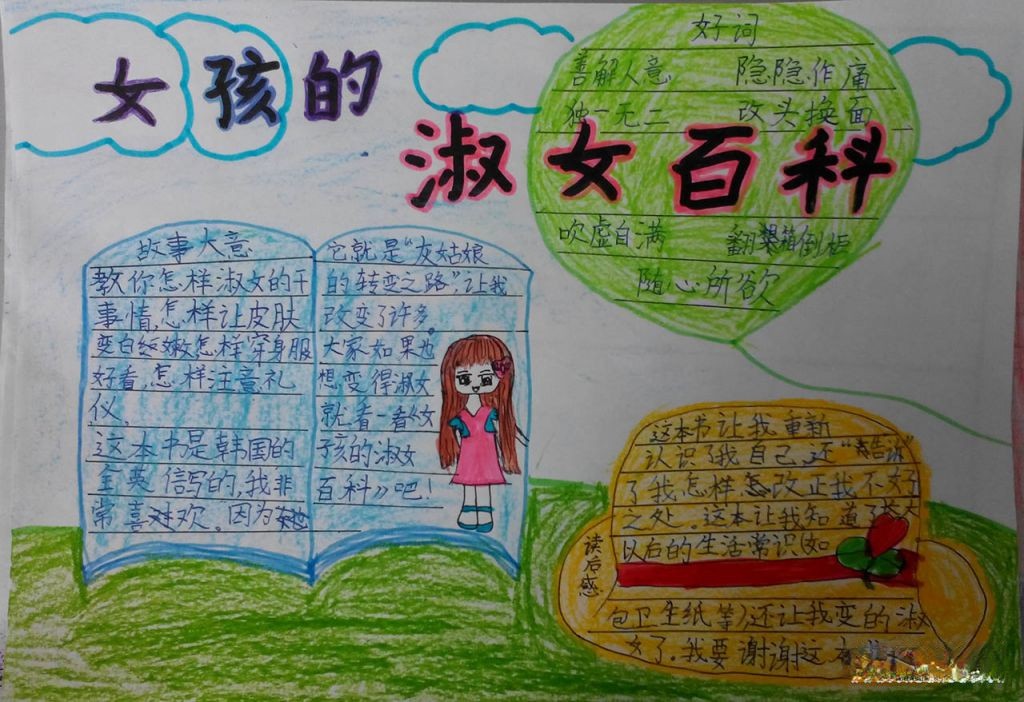 女孩的
淑女百科
好词
善解人意 隐隐作痛
独一无二 改头换面
吹虚自满 翻箱倒柜
随心所欲
故事大意
教你怎样淑女的干
事情,怎样让皮肤
变白细嫩怎样穿身服
好看,怎样注意礼
仪.
这本书是韩国的
金英 信写的,我非
常喜欢。因为
它就是“灰姑娘
的转变之路”,让我
改变了许多。
大家如果也
想变得淑女
就看一看《女
孩的淑女
百科》吧!
读后感
这本书让我重新
认识了我自己,还“告诉”
了我怎样改正我不好
之处。这本让我知道了长大
以后的生活常识(如
包卫生纸等)还让我变的淑
女了。我要谢谢这本